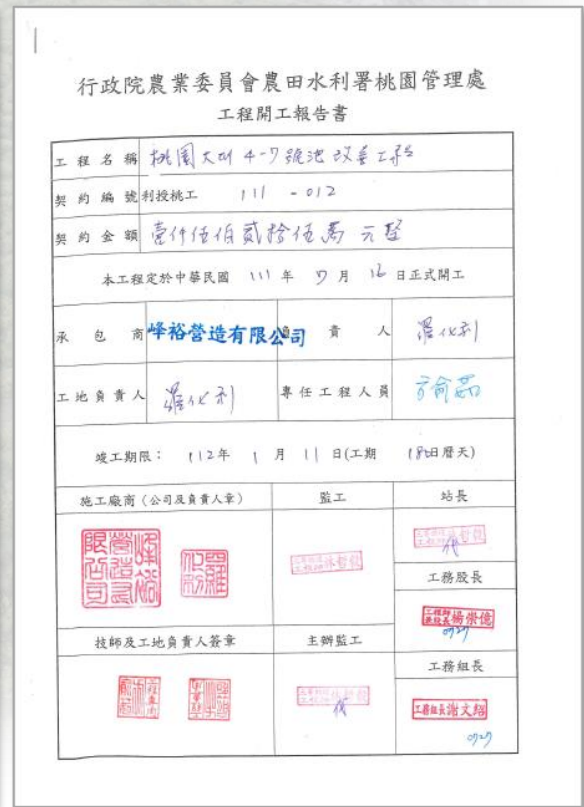 行政院農業委員會農田水利署桃園管理處
工程開工報告書
工程名稱 桃園大圳 4-7 號池 改善工程
契約編號 利授桃工 111 - 012
契約金額 壹仟伍佰貳拾伍萬 元整
本工程定於中華民國 111 年 7 月 16 日正式開工
承包商 峰裕營造有限公司 負責人
工地負責人 專任工程人員
竣工期限： 112年 1 月 11 日(工期 180日曆天)
施工廠商（公司及負責人章） 監工 站長
峰裕營造有限公司
代
工務股長
工程師兼股長 楊崇億
0727
技師及工地負責人簽章 主辦監工
工務組長
代
工務組長 謝文紹
0727